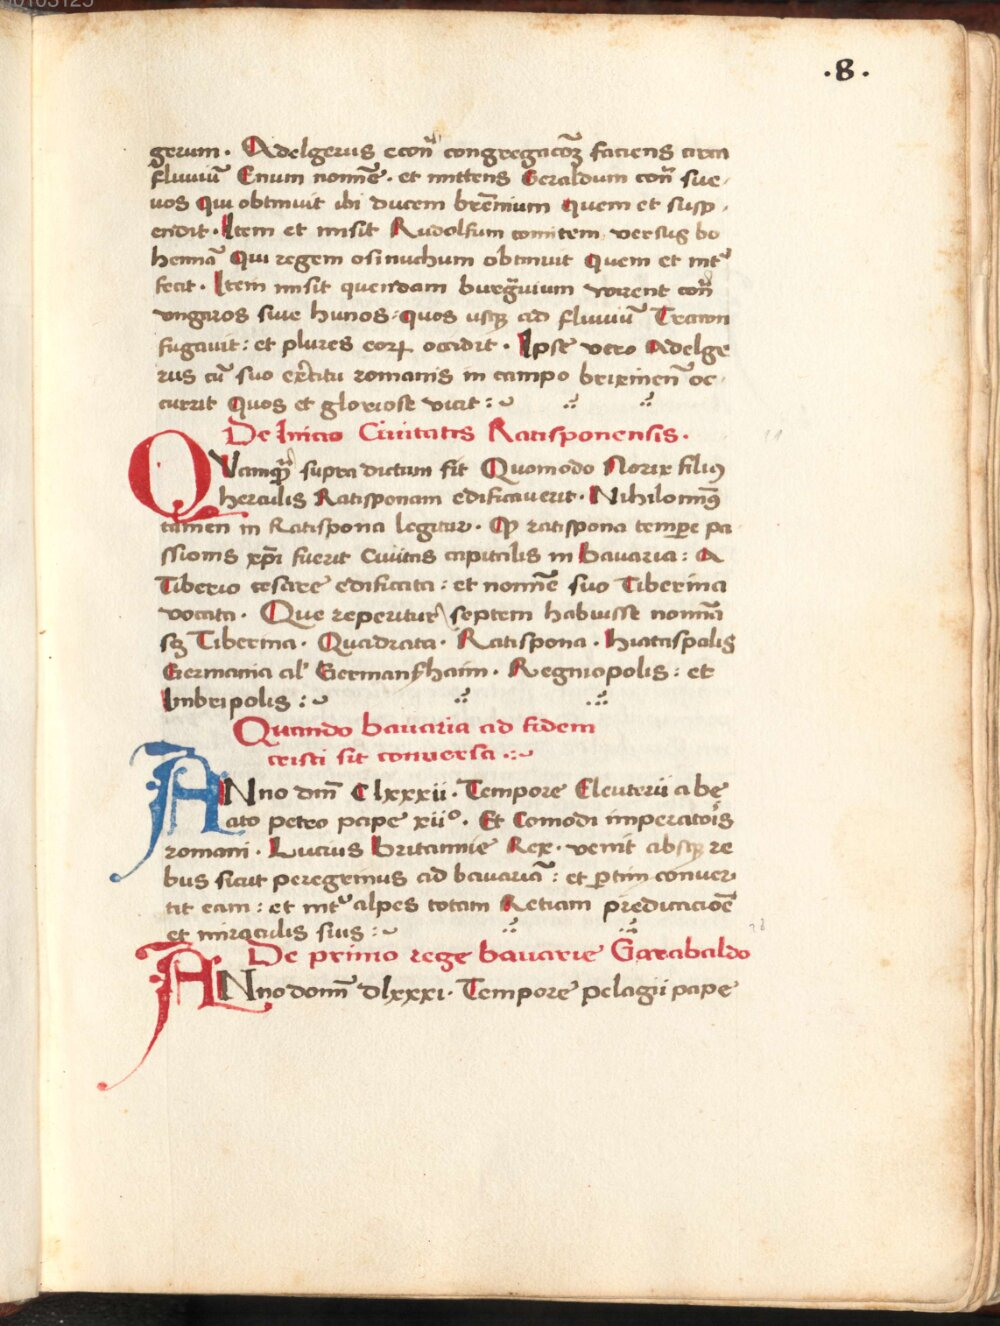 ·8·
gerum · Adelgerus econ̄ congregacōꝫ faciens circa
fluuiū Enum nomīe · et mittens Geraldum con̄ sue-
uos Qui obtinuit ibi ducem brēnium quem et susp-
endit · Item et misit Rudolfum comitem versus bo
hemiā Qui regem osinuchum obtinuit Quem et int̾
fecit · Item misit quendam burgͣuium vorent con̄
vngaros siue hunos · quos usqꝫ ad fluuiū Tracon
fugauit : et plures eorꝝ occidit · Ipse vero Adelge
rus cū suo exc̄itu romanis in campo brixinen̄ oc-
currit Quos et gloriose vicit :
De Inicio Ciuitatis Ratisponensis ·
QVamqͣꝫ supra dictum sit Quomodo Norix filiꝰ
herculis Ratisponam edificauerit · Nihilominꝰ
tamen in Ratispona legitur · Qꝫ ratispona tempore pa
ssionis xp̄i fuerit Ciuitas capitalis in bauaria : A
Tiberio cesare edificata : et nomīe suo Tiberina
vocata · Que reperitur septem habuisse nomīa
sꝫ Tiberina · Quadrata · Ratispona · hiataspalis
Germania al' Germanshaim · Regniopolis : et
Imbripolis :
Quando bauaria ad fidem
cristi sit conuersa :
ANno dm̄ Clxxxii · Tempore Eleuterii a be
ato petro pape xii° · Et Comodi imperatoris
romani · Lucius Britannie Rex · venit absqꝫ re
bus sicut peregrinus ad bauariā : et ꝑtim conuer
tit eam : et int̾ alpes totam Retiam predicacioē
et miraculis suis :
De primo rege bauarie Garabaldo
ANno domī dlxxxi · Tempore pelagii pape